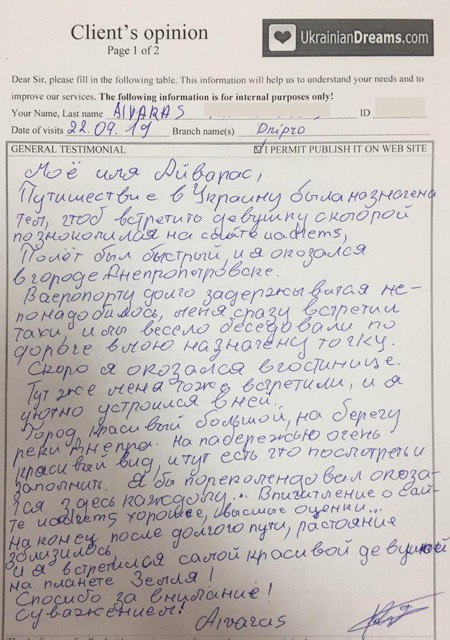 Client's opinion
Page 1 of 2
UkrainianDreams.com
Dear Sir, please fill in the following table. This information will help us to understand your needs and to
improve our services. The following information is for internal purposes only!
Your Name, Last name AIVARAS ID
Date of visits 22.09.19 Branch name(s) Dnipro
GENERAL TESTIMONIAL I PERMIT PUBLISH IT ON WEB SITE
Моё имя Айварас,
Путишествие в Украину была назначена
тем, чтоб встретить девушку скоторой
познокомился на сайте uadreams,
Полёт был быстрый, и я оказался
в городе Днепропетровске.
Ваеропорту долго задержыватся не-
понадобилось, меня сразу встретил
такси, и мы весело беседовали по
дороге в мою назначену точку.
Скоро я оказался вгостинице.
Тут же меня тоже встретили, и я
уютно устроился в ней.
Город красивый большой, на берегу
реки Днепра. На набережью очень
красивый вид, и тут есть что посмотреть и
запомнить. Я бы порекомендовал оказа-
тся здесь каждому... Впичатление о сай-
те uadreams хорошее, и высшые оценки...
На конец, после долгого пути, растояние
зблизилось
и я встретился самой красивой девушкой
на планете Земля!
Спосибо за внимание!
Суважением!
Aivaras